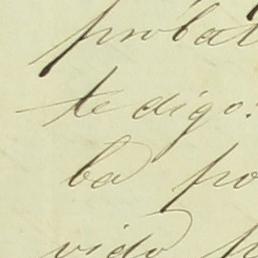 probat
te digo:
ba po
vido p